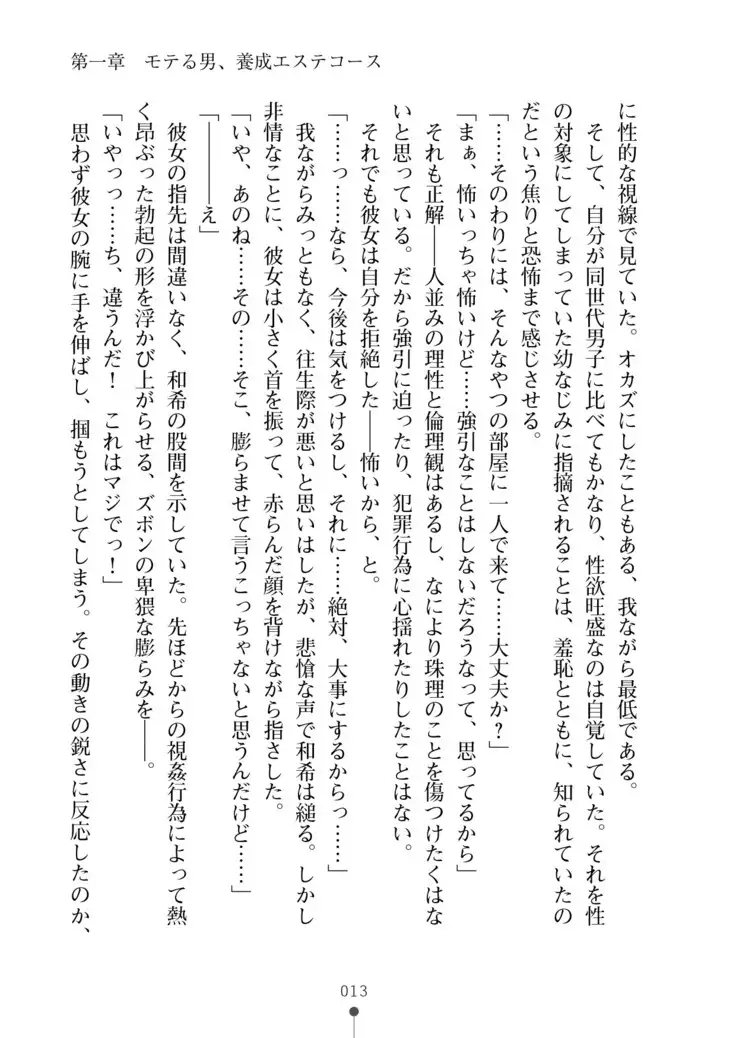 第一章　モテる男、養成エステコース
に性的な視線で見ていた。オカズにしたこともある、我ながら最低である。
　そして、自分が同世代男子に比べてもかなり、性欲旺盛なのは自覚していた。それを性
の対象にしてしまっていた幼なじみに指摘されることは、羞恥とともに、知られていたの
だという焦りと恐怖まで感じさせる。
「……そのわりには、そんなやつの部屋に一人で来て……大丈夫か？」
「まぁ、怖いっちゃ怖いけど……強引なことはしないだろうなって、思ってるから」
　それも正解――人並みの理性と倫理観はあるし、なにより珠理のことを傷つけたくはな
いと思っている。だから強引に迫ったり、犯罪行為に心揺れたりしたことはない。
　それでも彼女は自分を拒絶した――怖いから、と。
「……っ……なら、今後は気をつけるし、それに……絶対、大事にするからっ……」
　我ながらみっともなく、往生際が悪いと思いはしたが、悲愴な声で和希は縋る。しかし
非情なことに、彼女は小さく首を振って、赤らんだ顔を背けながら指さした。
「いや、あのね……その……そこ、膨らませて言うこっちゃないと思うんだけど……」
「――――え」
　彼女の指先は間違いなく、和希の股間を示していた。先ほどからの視姦行為によって熱
く昂ぶった勃起の形を浮かび上がらせる、ズボンの卑猥な膨らみを――。
「いやっっ……ち、違うんだ！　これはマジでっ！」
　思わず彼女の腕に手を伸ばし、掴もうとしてしまう。その動きの鋭さに反応したのか、
013